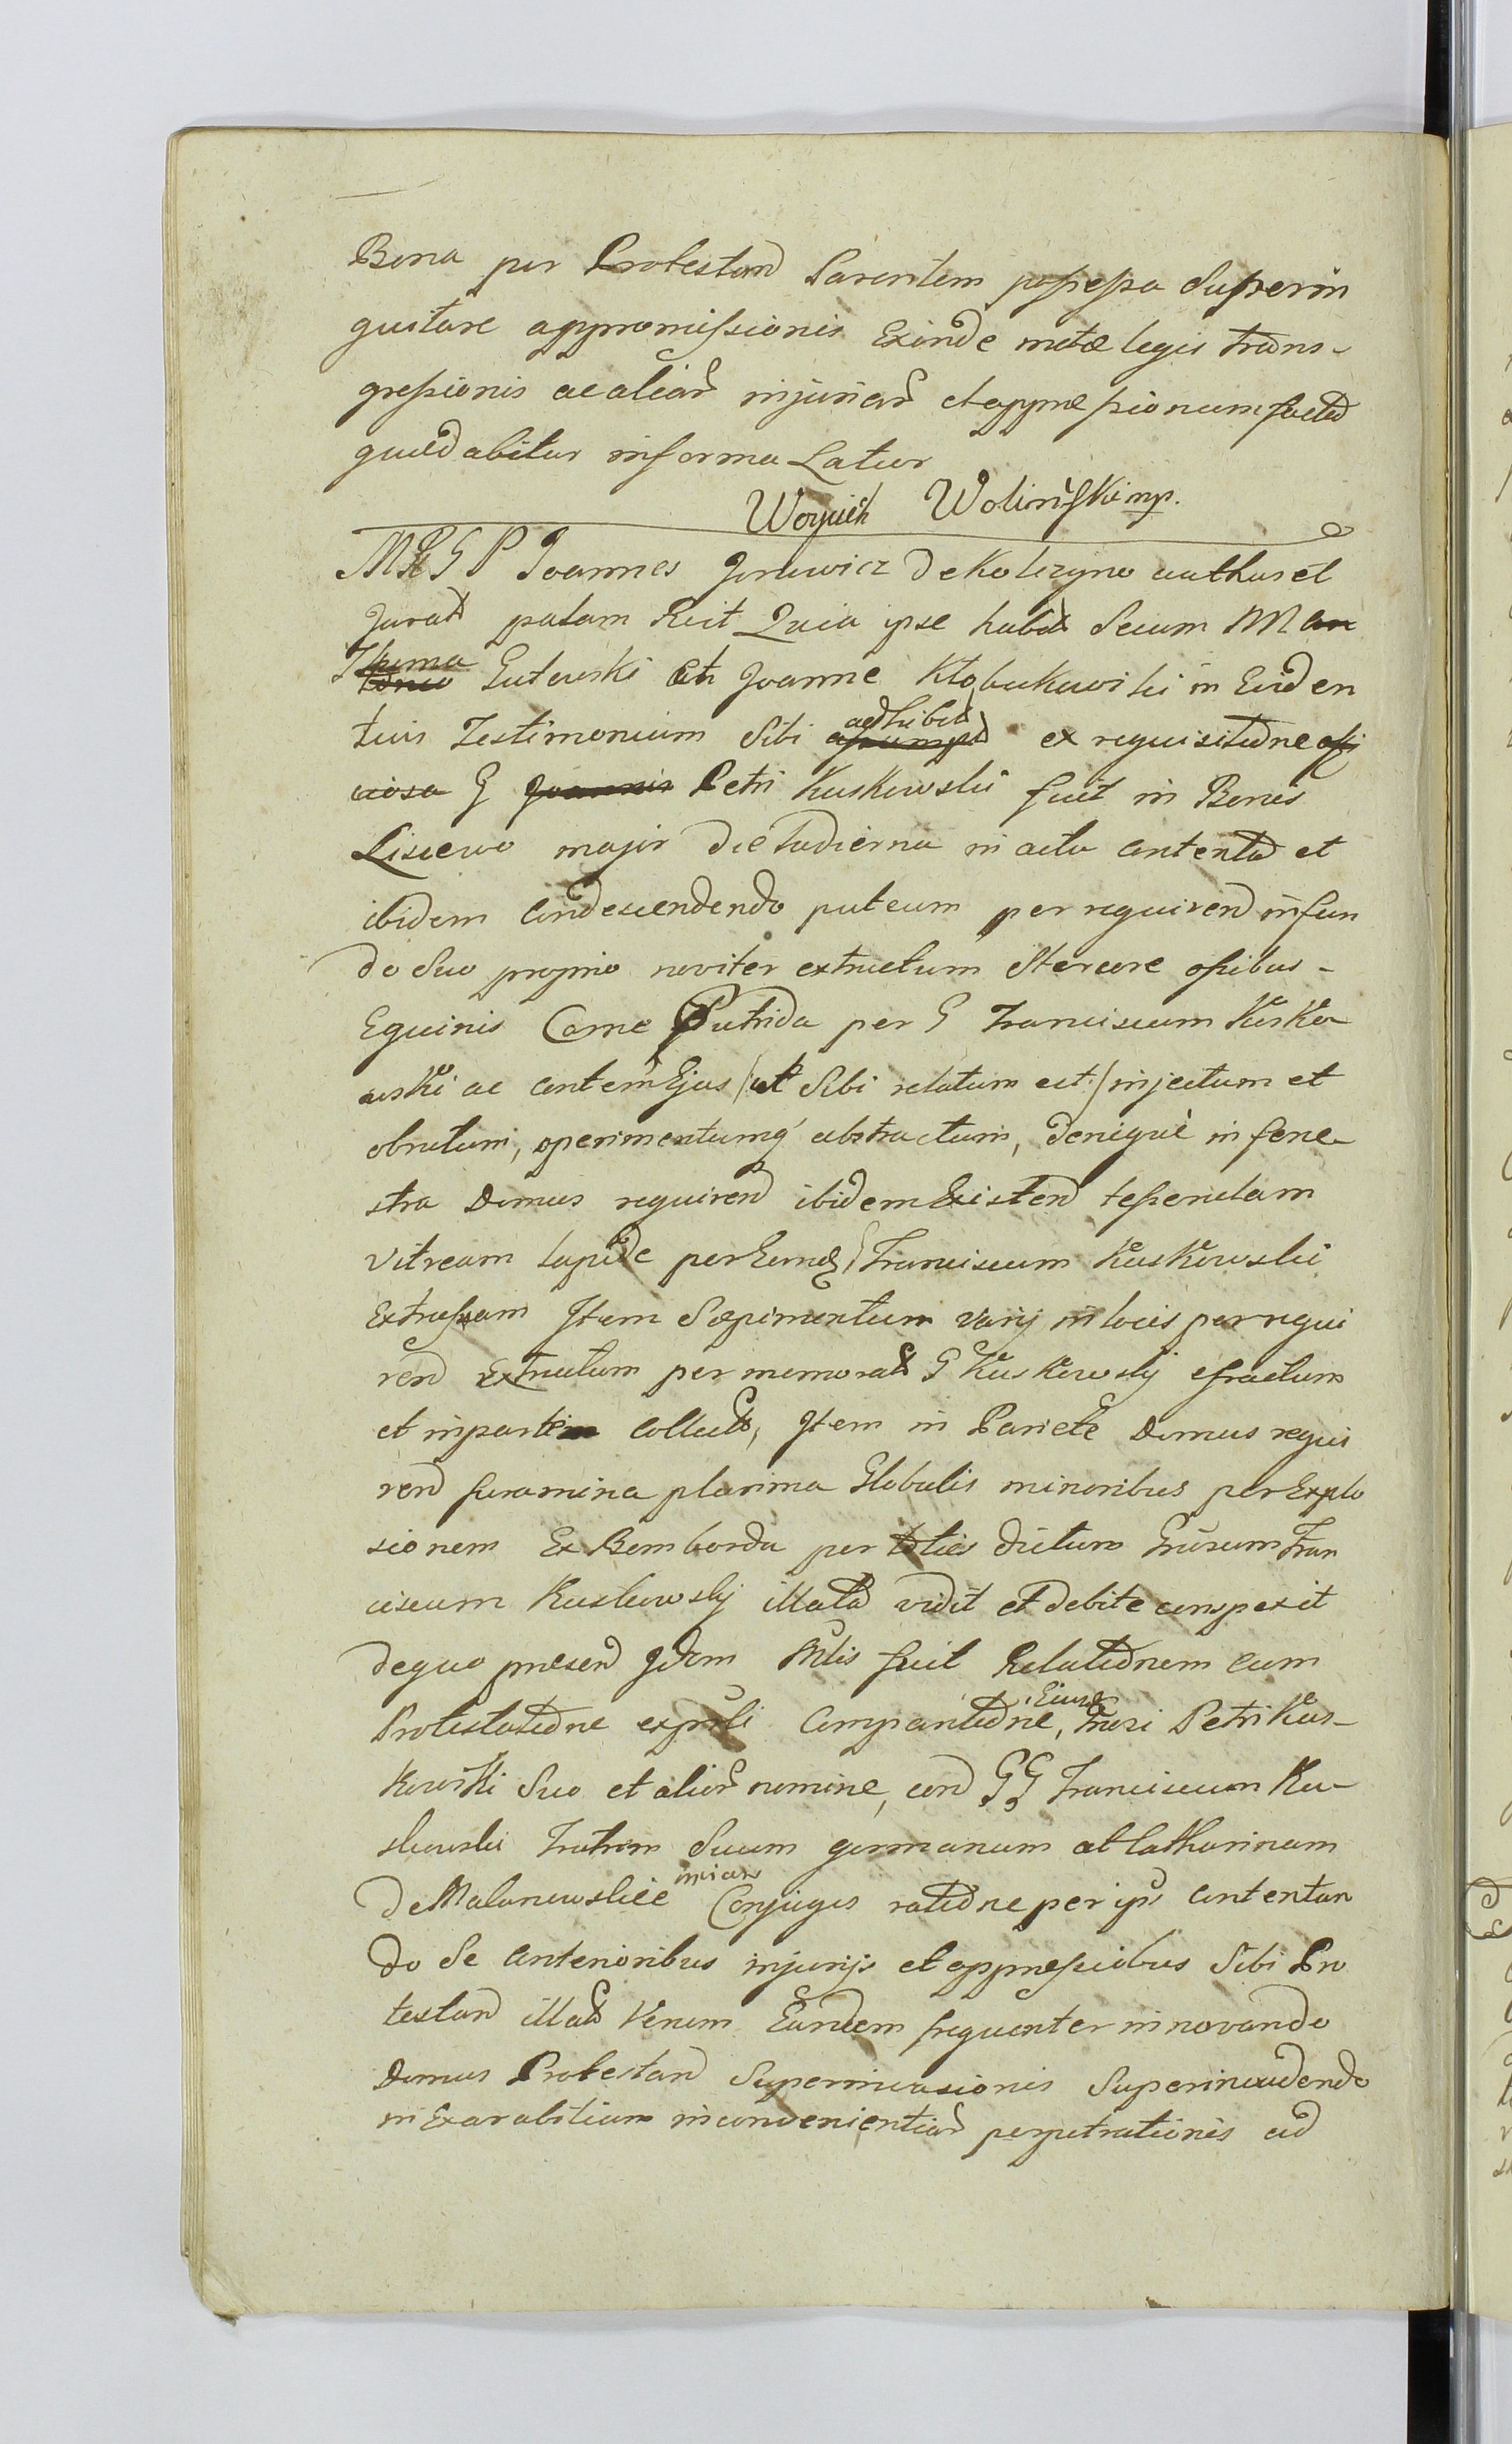 Bona per Protestand Parentem possessa superin
guitare appromissionis Exinde metæ legis trans-
gressionis ac aliar injuriar et oppræssionum factad
quædabitur in forma Latior
Woyciech Woliński mp.
M R G P Joannes Jorewicz de Kolczyno authus et
Jurat palam Recit Quia ipse habit Secum M
Thoma Gutowski et Joanne Kłobukowski in Eviden
tius Testimonium Sibi adhibit ex requisitione offi
ciosa G Petri Kuskowski fuit in Bonis
Lisiewo major die hodierna in actu contentad et
ibidem condescendendo puteum per requirend in fun
do Suo proprio noviter extructum Stercore ossibus
Equinis Carne Putrida per G Franciscum Kusko
wski ac contem Ejus /ut Sibi relatum est/ injectum et
obrutum, operimentumq abstractum, denique in fene
stra Domus requirend ibidem Existend tesserulam
Vitream lapide per Eumd Franciscum Kuskowski
Extrussam Item Sæpimentum varij in locis per requi
rend Extructum per memorat G Kuskowskj efractum
et in parte collect, Item in Pariete Domus requi
rend foramina plurima Globulis minoribus per Explo
sionem Ex Bombarda per toties dictum Grūsum Fran
ciscum Kuskowskj illatad vidit et debite conspexit
de quo præsend Idem Mtlis fecit Relationem cum
Protestatione exprsli Comparitione, Ejusd Grosi Petri Kus-
kowski Suo et alior nomine, cond GG Franciscum Ku-
skowski Fratrem Suum germanum et Catharinam
de Malanowskie invicem Conjuges ratione per ips contentan
do Se anterioribus injurijs et oppressiōbus Sibi Pro
testand illat Verum Eandem frequenter innovando
Domus Protestand Superinvasionis Superinvadendo
in Exorabilium inconvenientiar perpetrationis ad